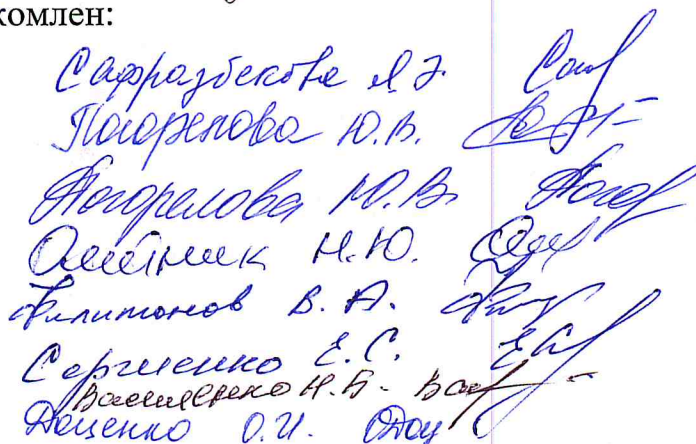 комлен:
Сафразбекова Л.Э.
Погорелова Ю.В.
Погорелова М.В. Погор
Олейник Н.Ю.
Филимонов В.А.
Сергиенко Е.С.
Василенко Н.Б.
Доценко О.И. ОДоц